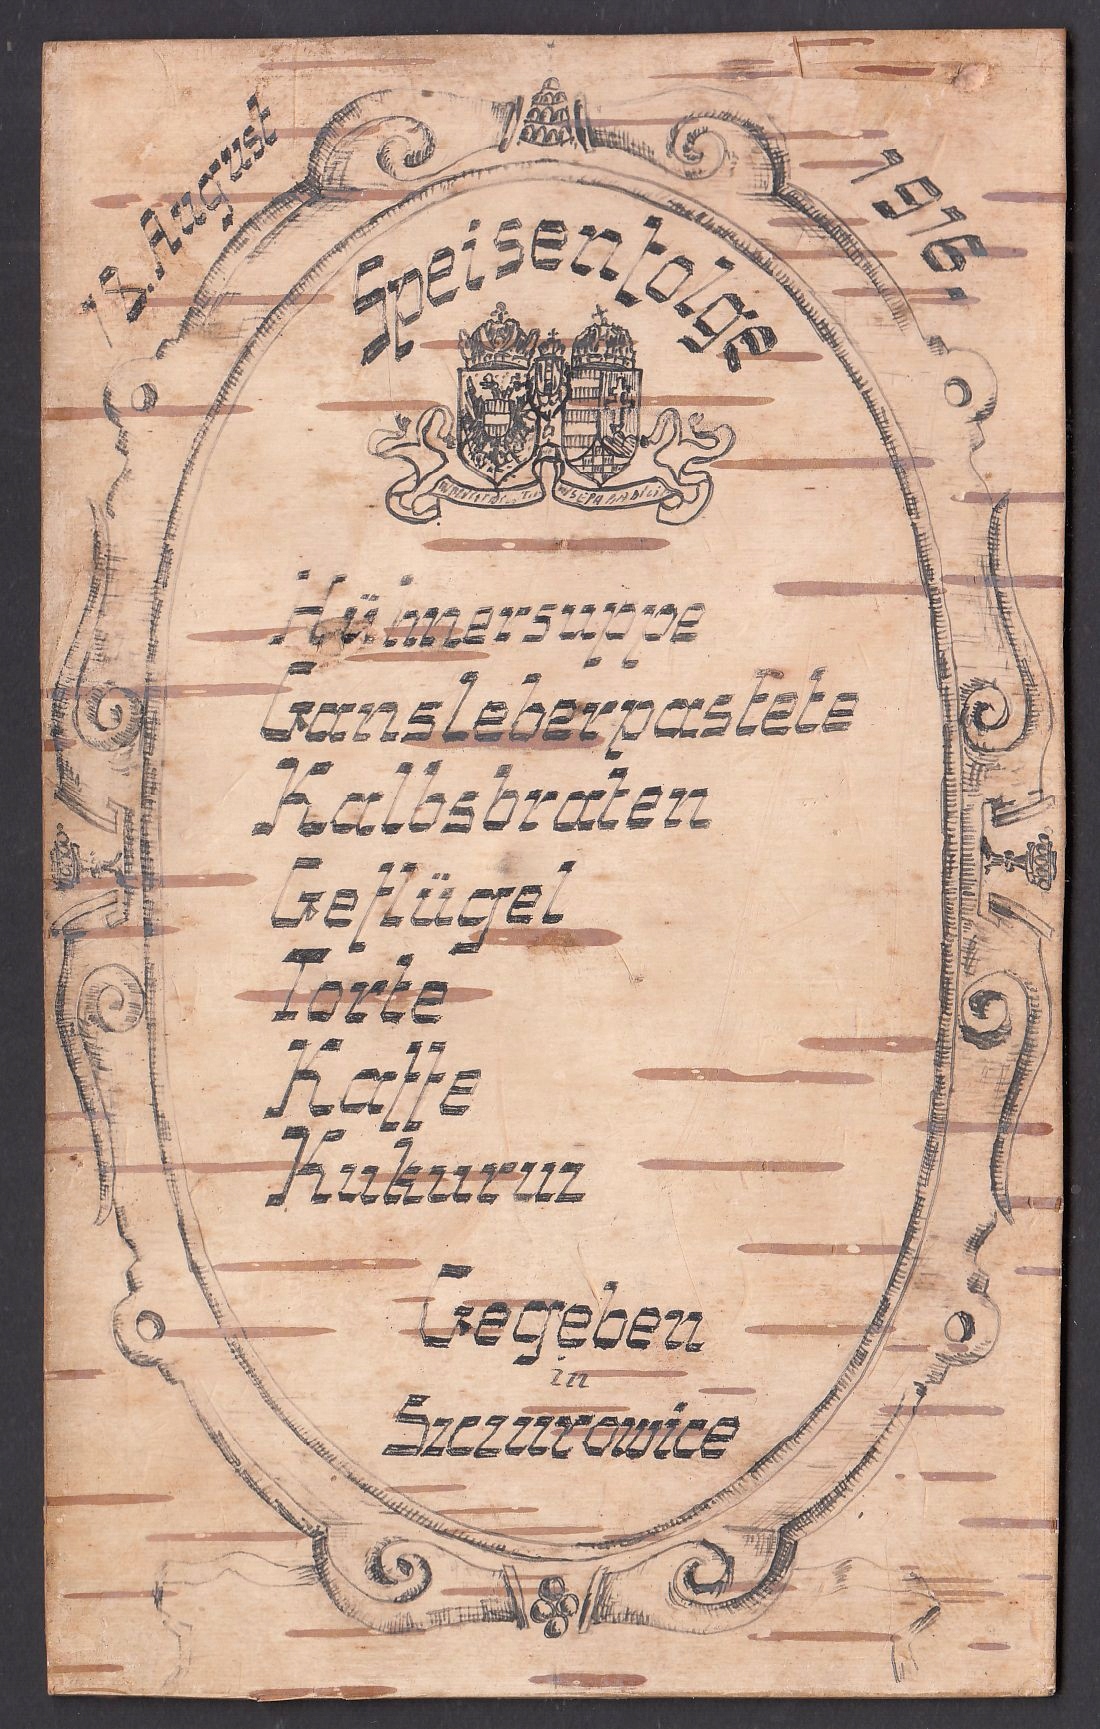 18. August 1916.
Speisenfolge
INSEPARABILITER
Hühnersuppe
Gansleberpastete
Kalbsbraten
Geflügel
Torte
Kaffe
Kukuruz
Gegeben
in
Szczurowice